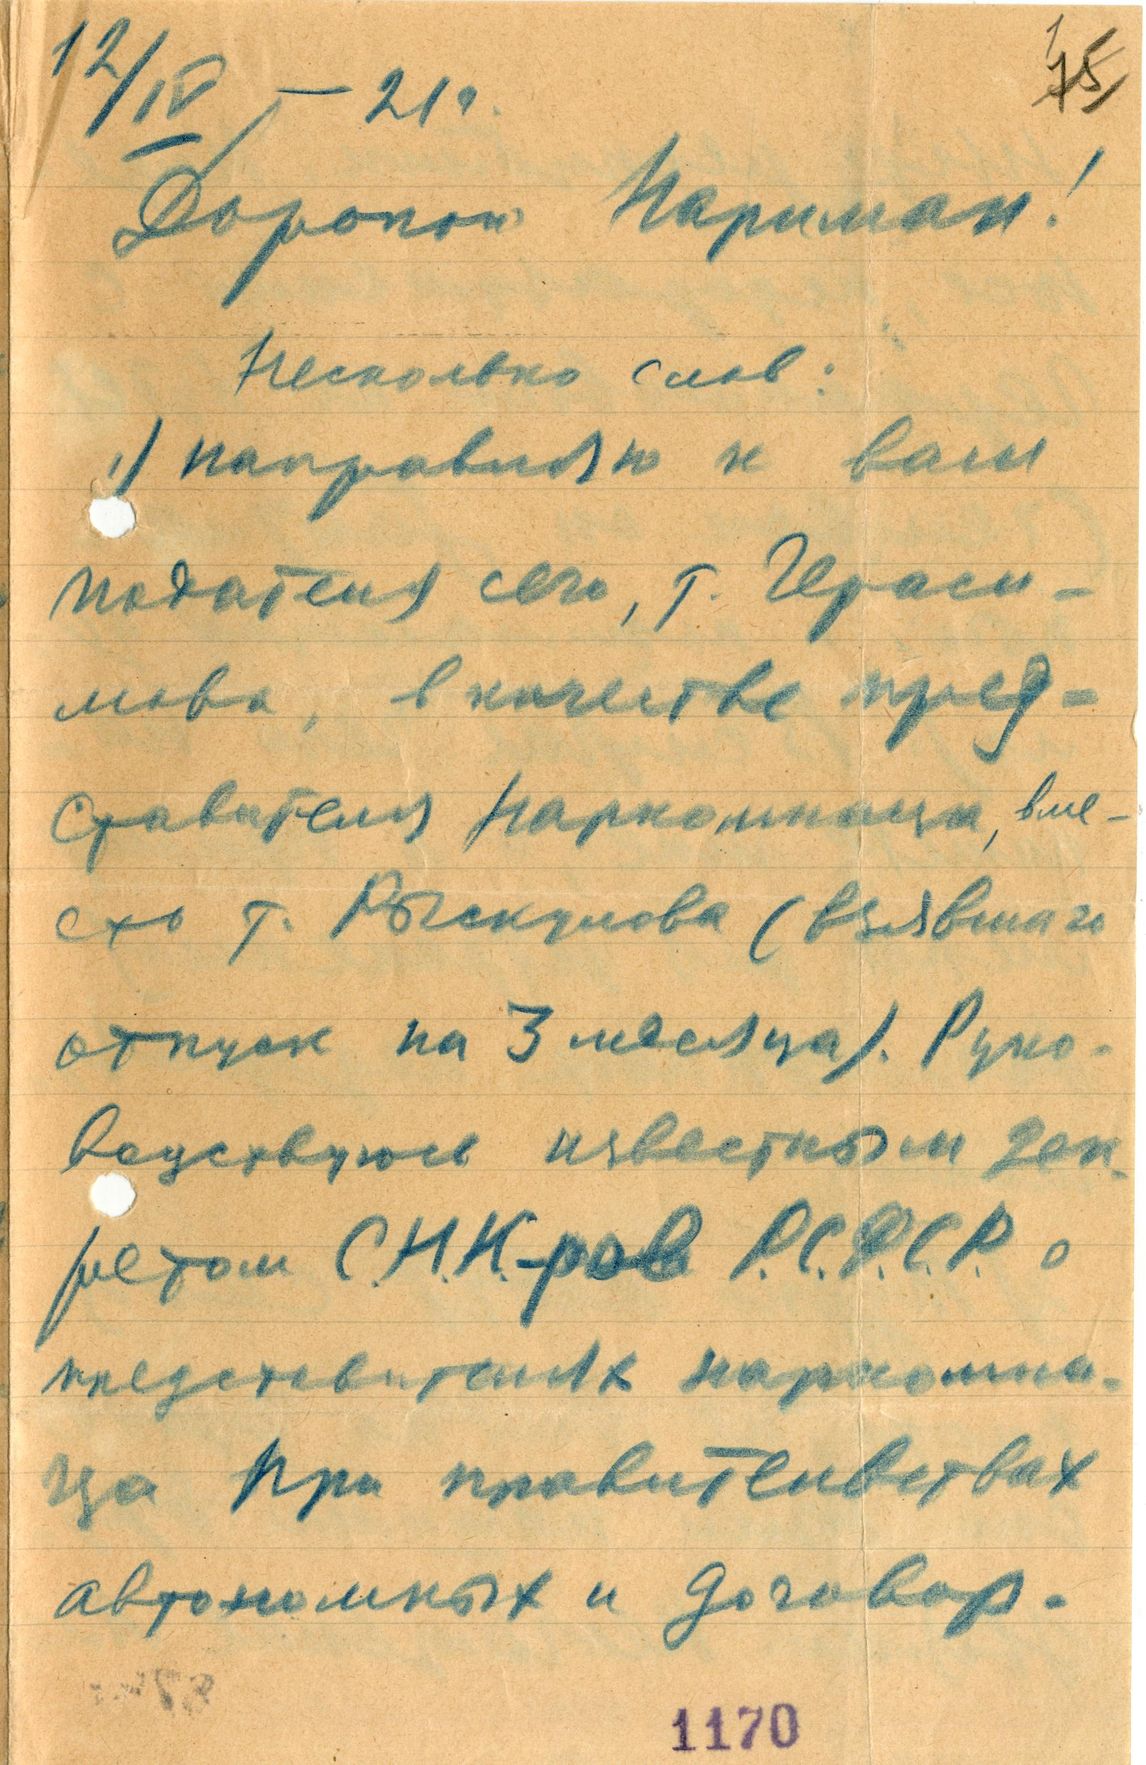 12/IV – 21 г.
75
Дорогой Нариман!
Несколько слов:
1) направляю к вам
подателя сего, т. Гераси-
мова, в качестве пред-
ставителя Наркомнаца, вме-
сто т. Рыскулова (взявшаго
отпуск на 3 месяца). Руко-
водствуюсь известным дек-
ретом С.Н.К-ров Р.С.Ф.С.Р. о
представителях наркомна-
ца при правительствах
автономных и договор-
1170